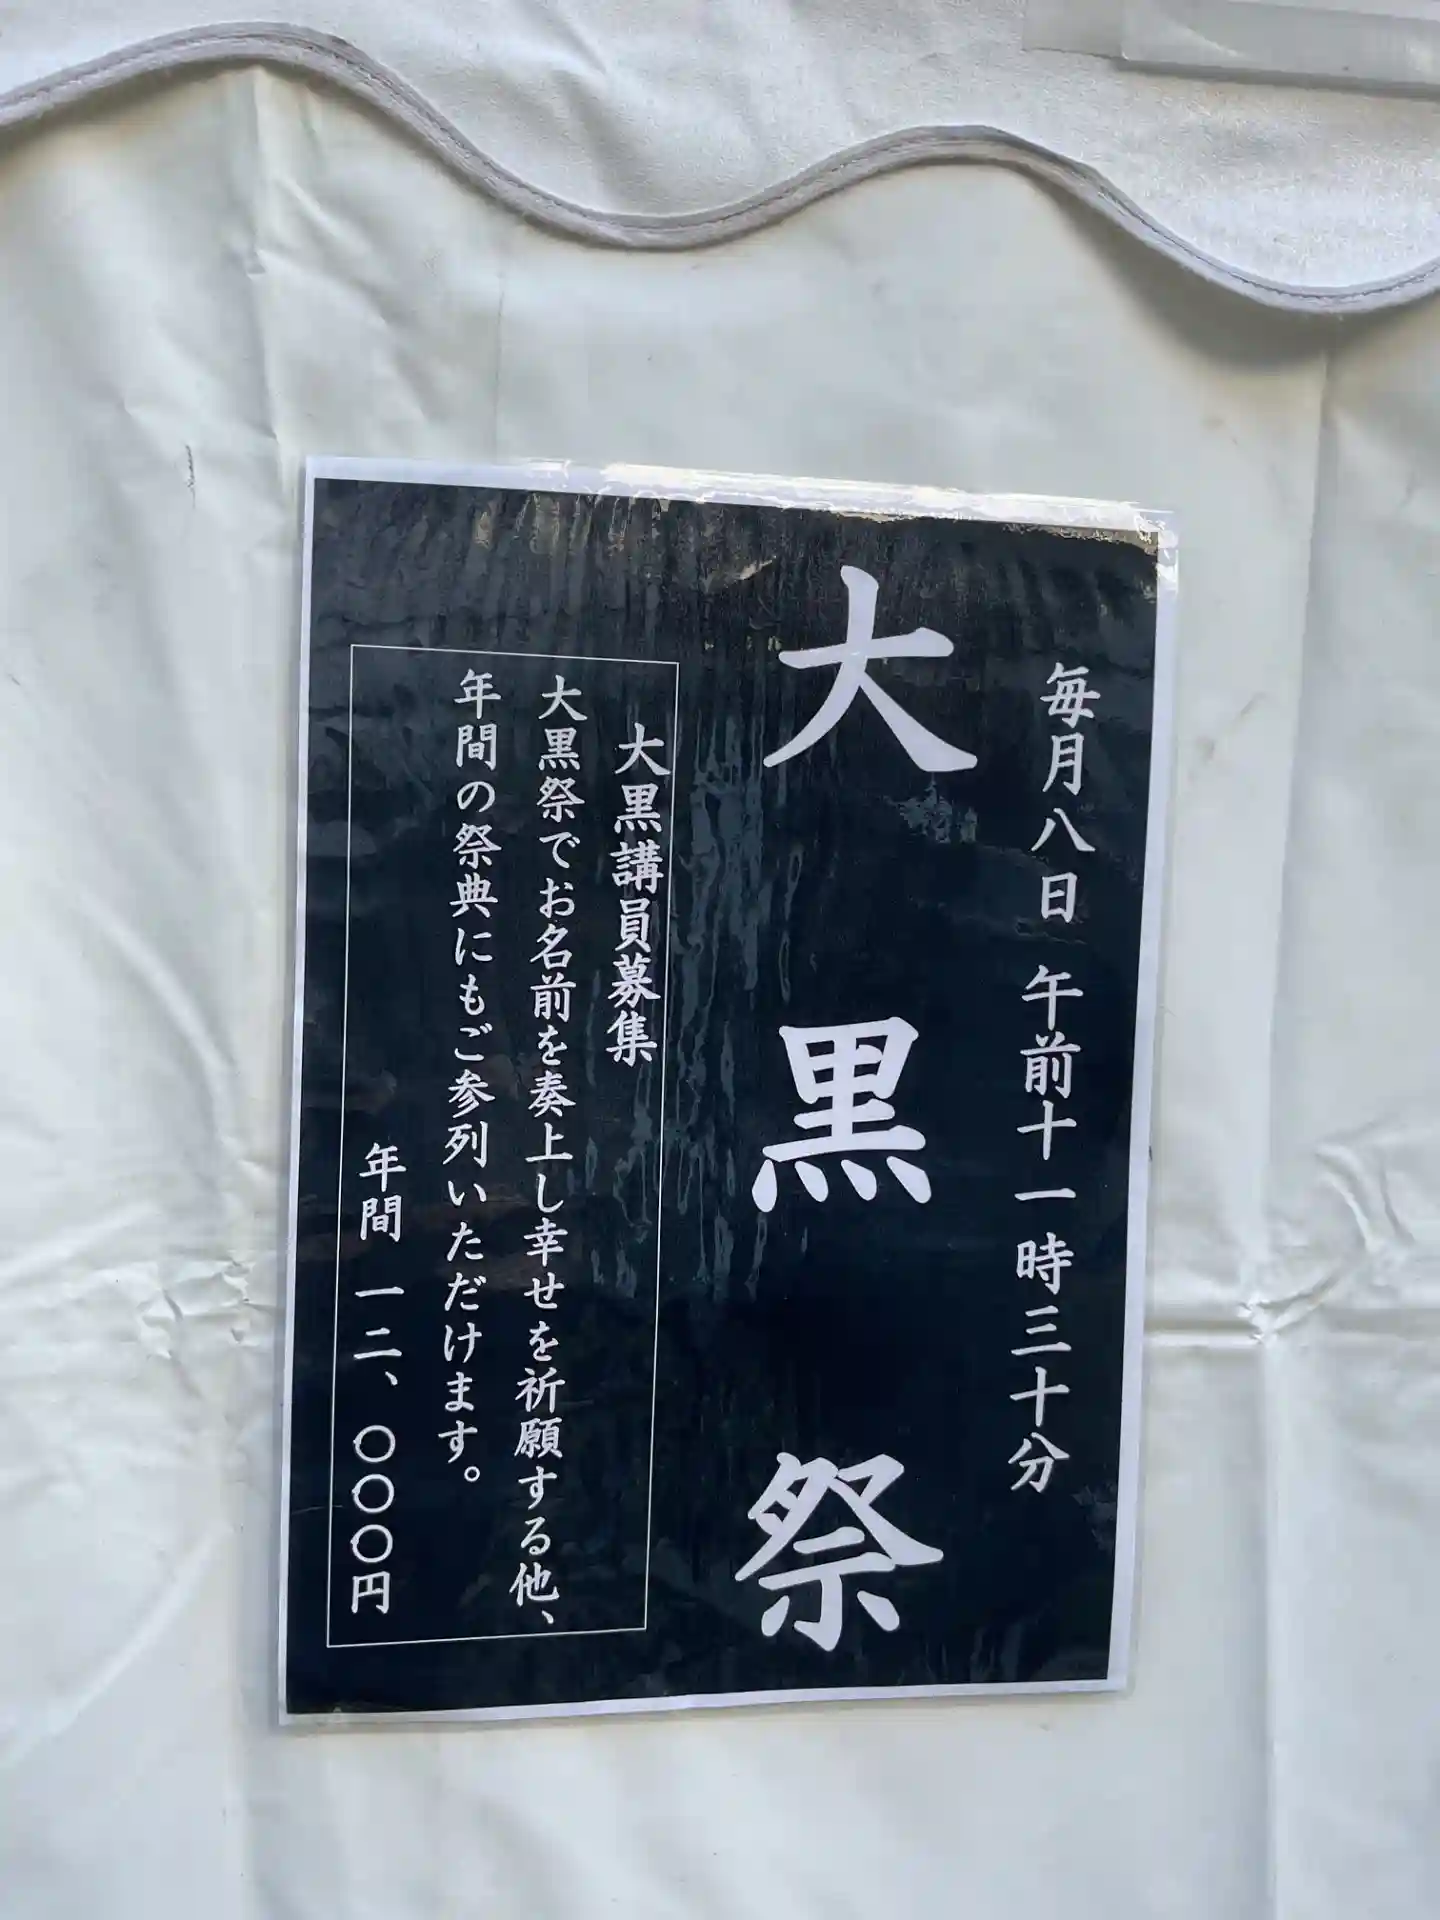 毎月八日 午前十一時三十分
大黒祭
大黒講員募集
大黒祭でお名前を奏上し幸せを祈願する他、
年間の祭典にもご参列いただけます。
年間 一二、〇〇〇円